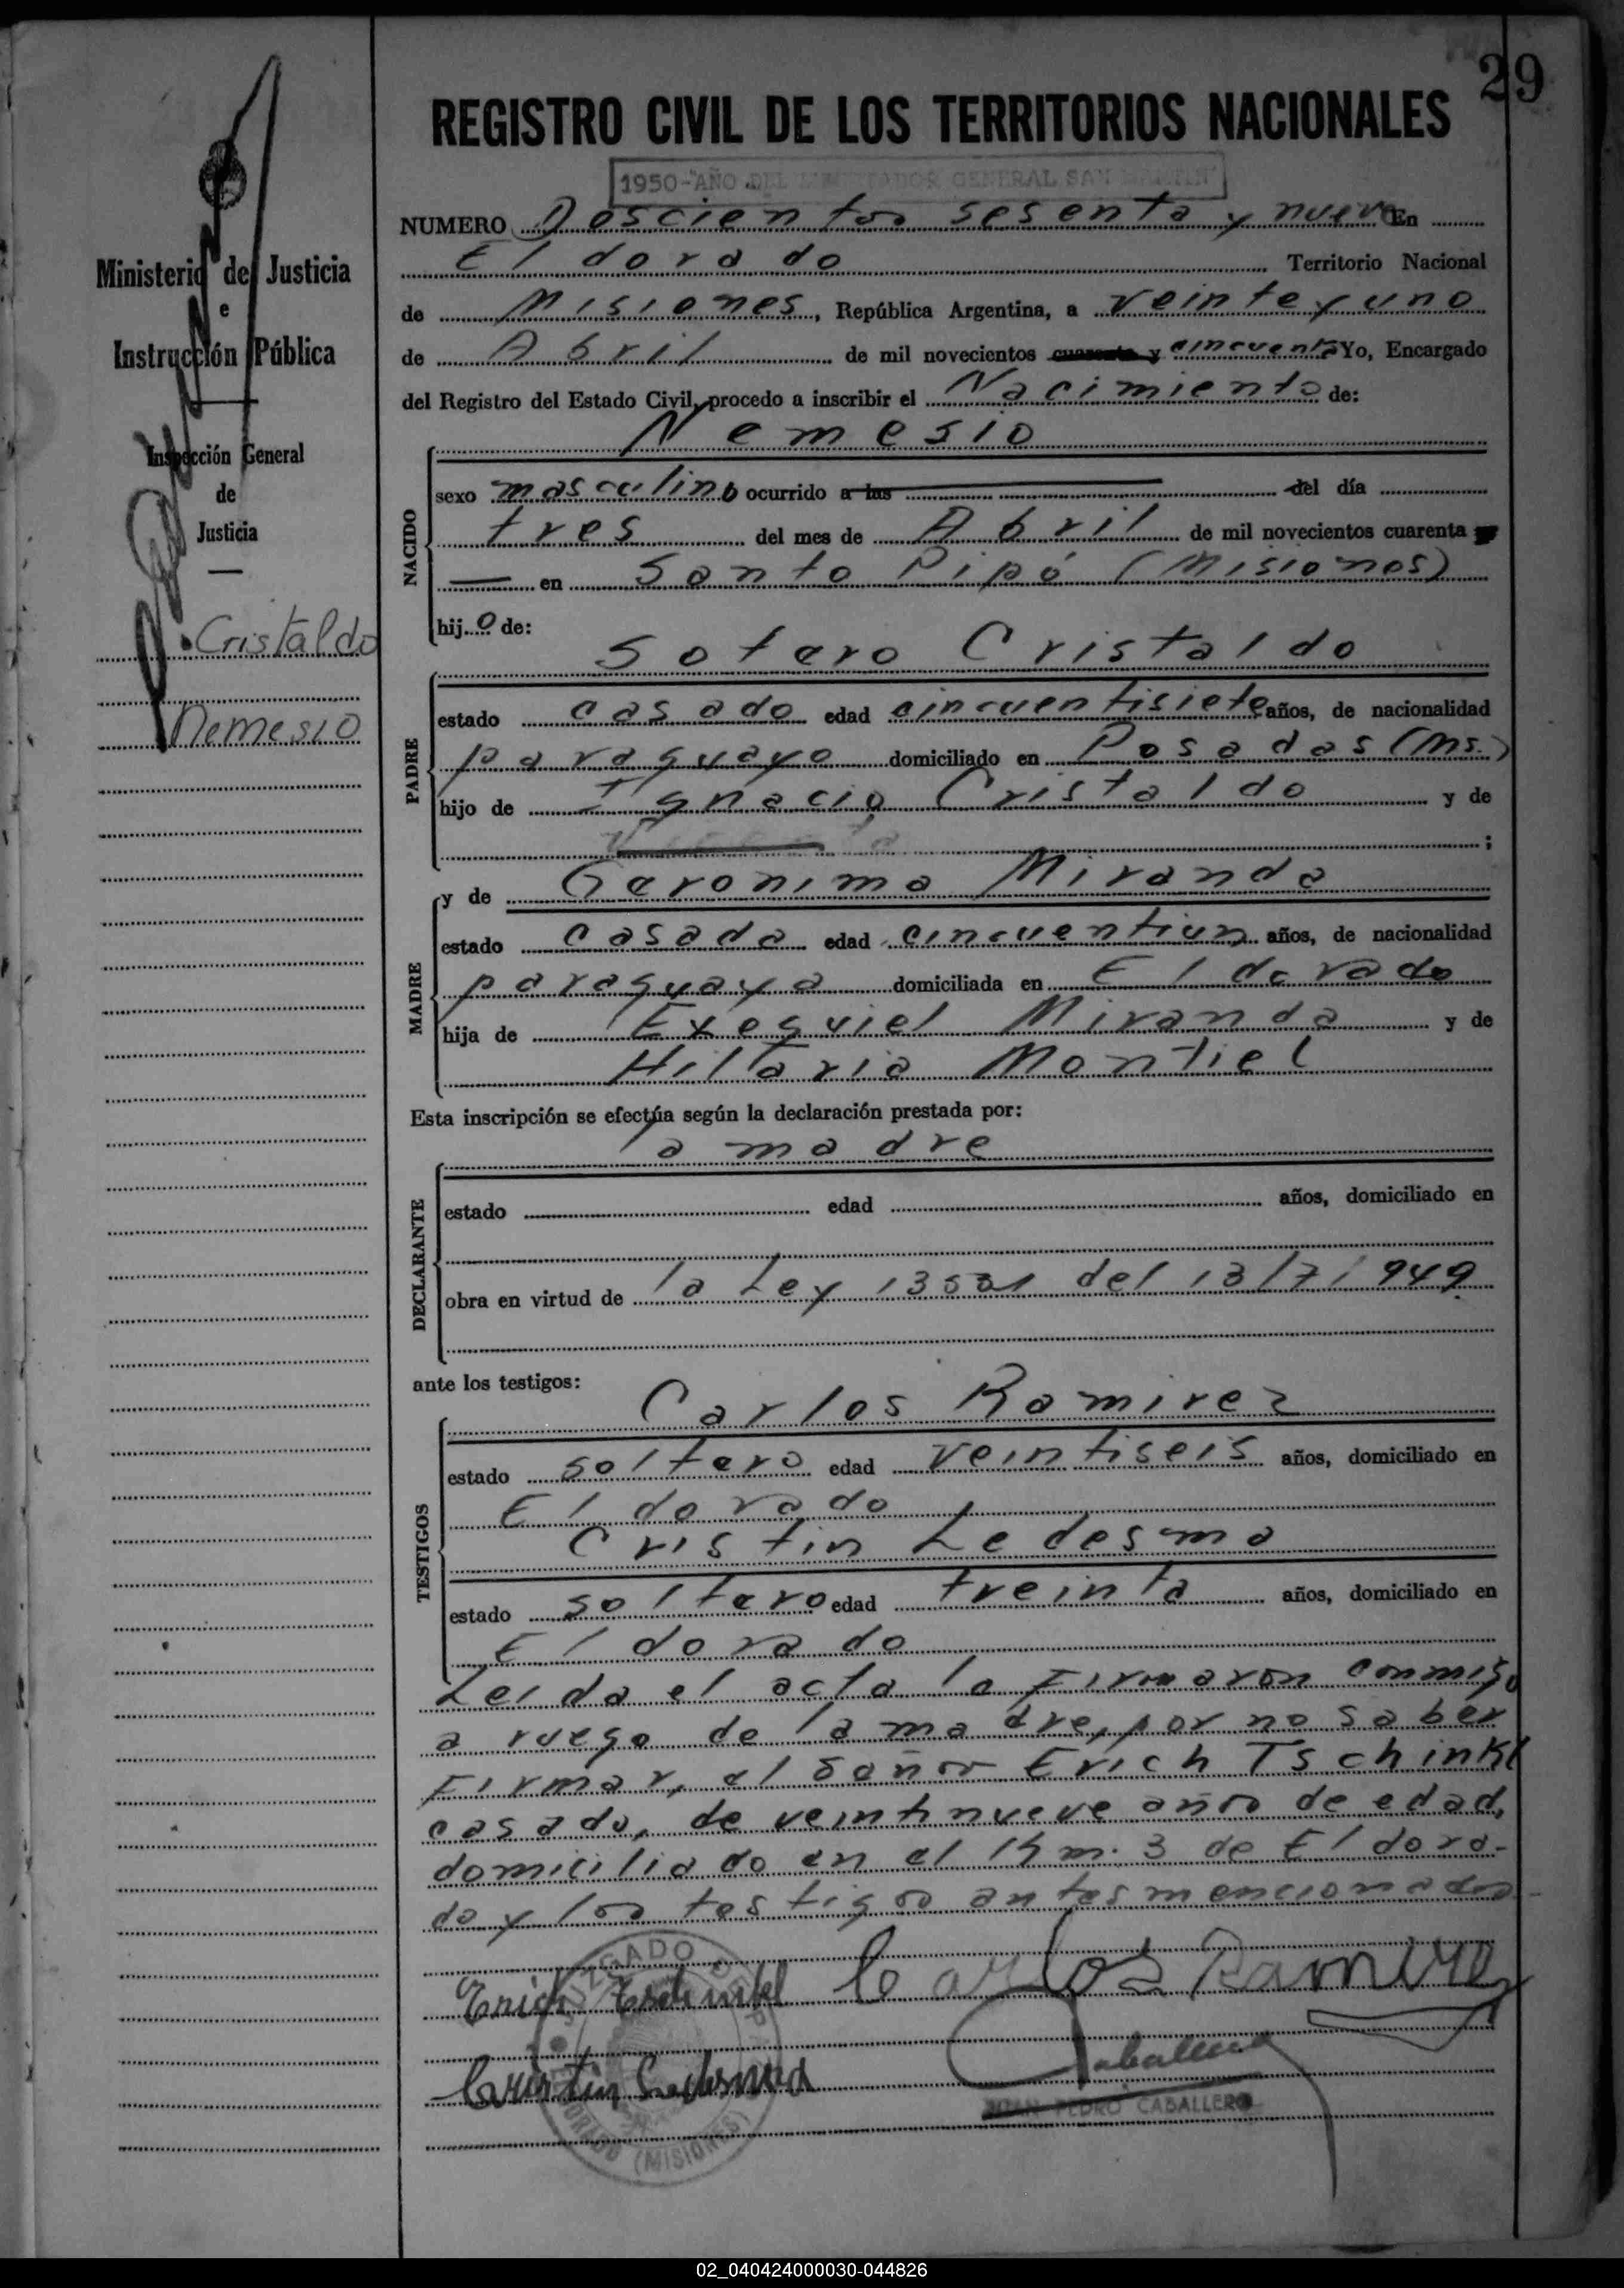 29
REGISTRO CIVIL DE LOS TERRITORIOS NACIONALES
1950-"AÑO DEL LIBERTADOR GENERAL SAN MARTIN"
NUMERO Doscientos sesenta y nueve En
Eldorado Territorio Nacional
de Misiones, República Argentina, a veinte y uno
de Abril de mil novecientos cuarenta y cincuenta Yo, Encargado
del Registro del Estado Civil, procedo a inscribir el Nacimiento de:
Nemesio
NACIDO
sexo masculino ocurrido a las del día
tres del mes de Abril de mil novecientos cuarenta
en Santo Pipó (Misiones)
hijo de:
Sotero Cristaldo
PADRE
estado casado edad cincuentisiete años, de nacionalidad
paraguayo domiciliado en Posadas (Ms.)
hijo de Ignacio Cristaldo y de
;
y de Geronima Miranda
MADRE
estado casada edad cincuentiun años, de nacionalidad
paraguaya domiciliada en Eldorado
hija de Exequiel Miranda y de
Hilaria Montiel
Esta inscripción se efectúa según la declaración prestada por:
la madre
DECLARANTE
estado edad años, domiciliado en
obra en virtud de la Ley del 13/7/949
ante los testigos:
Carlos Ramirez
TESTIGOS
estado soltero edad veintiseis años, domiciliado en
Eldorado
Cristin Ledesma
estado soltero edad treinta años, domiciliado en
Eldorado
Leida el acta la Firmaron conmigo
a ruego de la madre, por no saber
Firmar, el señor Erich Tschinkl
casado, de veintinueve años de edad,
domiciliado en el Km. 3 de Eldora-
do y los testigos antes mencionados
Erich Tschinkl Carlos Ramirez
Cristin Ledesma Caballero
JUAN PEDRO CABALLERO
JUZGADO DE PAZ
(MISIONES)
Ministerio de Justicia
e
Instrucción Pública
Inspección General
de
Justicia
Cristaldo
Nemesio
02_040424000030-044826